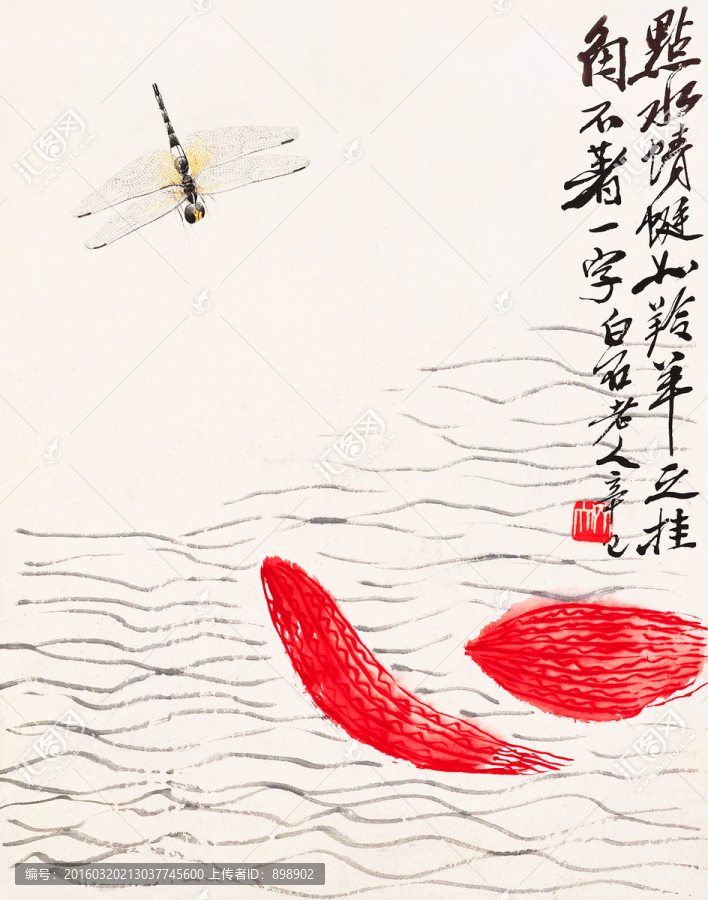 點水蜻蜓如羚羊之挂
角不著一字白石老人辛巳
编号：20160320213037745600 上传者ID：898902